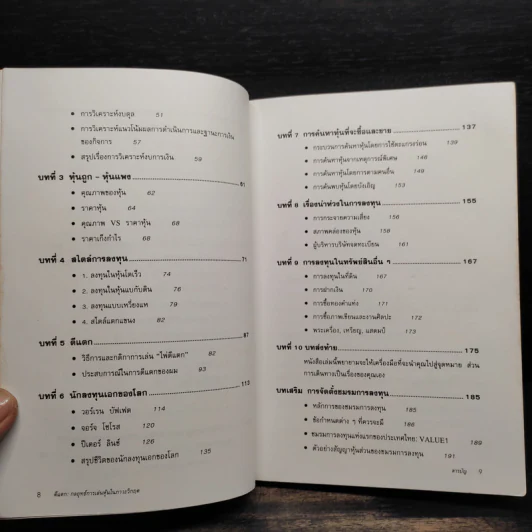 • การวิเคราะห์งบดุล 51
• การวิเคราะห์แนวโน้มผลการดำเนินการและฐานะการเงิน
ของกิจการ 57
• สรุปเรื่องการวิเคราะห์งบการเงิน 59
บทที่ 3 หุ้นถูก - หุ้นแพง 61
• คุณภาพของหุ้น 62
• ราคาหุ้น 64
• คุณภาพ VS ราคาหุ้น 68
• ราคาเก็งกำไร 68
บทที่ 4 สไตล์การลงทุน 71
• 1. ลงทุนในหุ้นโตเร็ว 74
• 2. ลงทุนในหุ้นแบกับดิน 76
• 3. ลงทุนแบบเหวี่ยงแห 79
• 4. สไตล์แตกแขนง 82
บทที่ 5 ตีแตก 87
• วิธีการและกติกาการเล่น "ไพ่ตีแตก" 82
• ประสบการณ์ในการตีแตกของผม 93
บทที่ 6 นักลงทุนเอกของโลก 113
• วอร์เรน บัฟเฟต 114
• จอร์จ โซโรส 120
• ปีเตอร์ ลินซ์ 126
• สรุปชีวิตของนักลงทุนเอกของโลก 135
8 ตีแตก: กลยุทธ์การเล่นหุ้นในภาวะวิกฤต
บทที่ 7 การค้นหาหุ้นที่จะซื้อและขาย 137
• กระบวนการค้นหาหุ้นโดยการใช้ตะแกรงร่อน 139
• การค้นหาหุ้นจากเหตุการณ์พิเศษ 146
• การค้นหาหุ้นโดยการตามคนอื่น 149
• การค้นพบหุ้นโดยบังเอิญ 153
บทที่ 8 เรื่องน่าห่วงในการลงทุน 155
• การกระจายความเสี่ยง 156
• สภาพคล่องของหุ้น 158
• ผู้บริหารบริษัทจดทะเบียน 161
บทที่ 9 การลงทุนในทรัพย์สินอื่น ๆ 167
• การลงทุนในที่ดิน 167
• การฝากเงิน 170
• การซื้อทองคำแท่ง 171
• การซื้อภาพเขียนและงานศิลปะ 172
• พระเครื่อง, เหรียญ, แสตมป์ 173
บทที่ 10 บทส่งท้าย 175
หนังสือเล่มนี้พยายามจะให้เครื่องมือที่จะนำคุณไปสู่จุดหมาย ส่วน
การเดินทางเป็นเรื่องของคุณเอง
บทเสริม การจัดตั้งชมรมการลงทุน 185
• หลักการของชมรมการลงทุน 185
• ข้อกำหนดต่าง ๆ ที่ควรจะมี 186
• ชมรมการลงทุนแห่งแรกของประเทศไทย: VALUE1 189
• ตัวอย่างสัญญาหุ้นส่วนของชมรมการลงทุน 191
สารบัญ 9